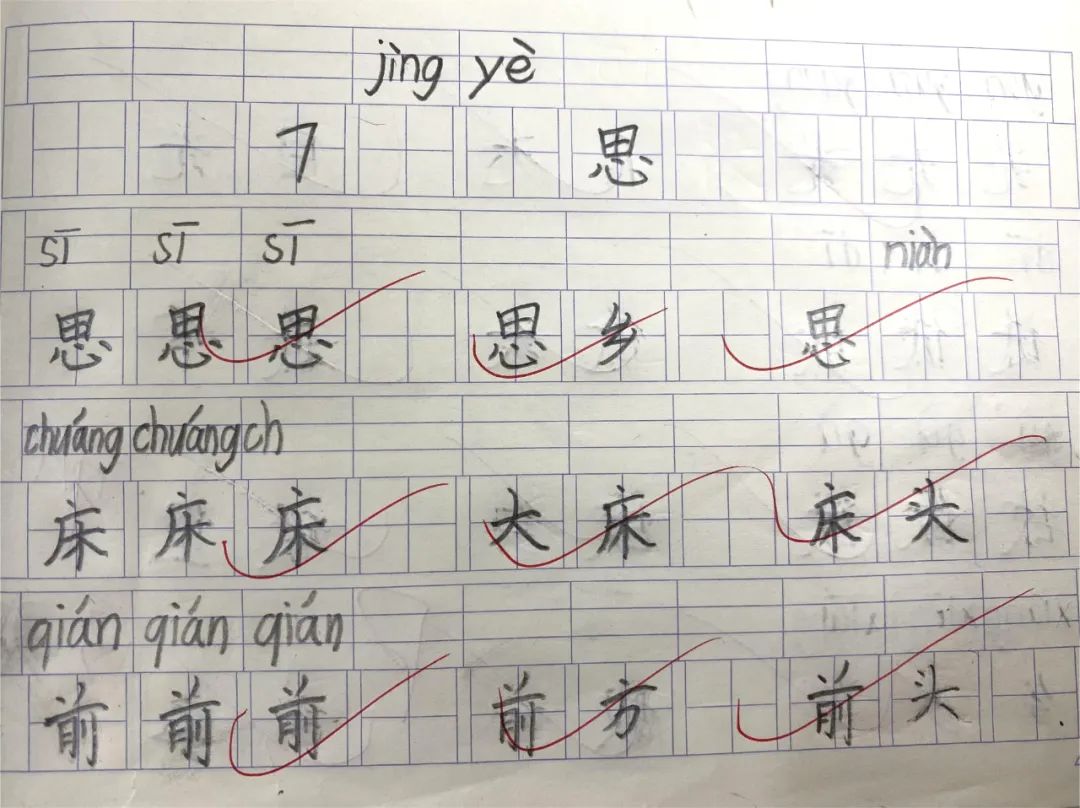 jìng yè
7 思
sī sī sī niàn
思 思 思 思 乡 思
chuáng chuáng ch
床 床 床 大 床 床 头
qián qián qián
前 前 前 前 方 前 头